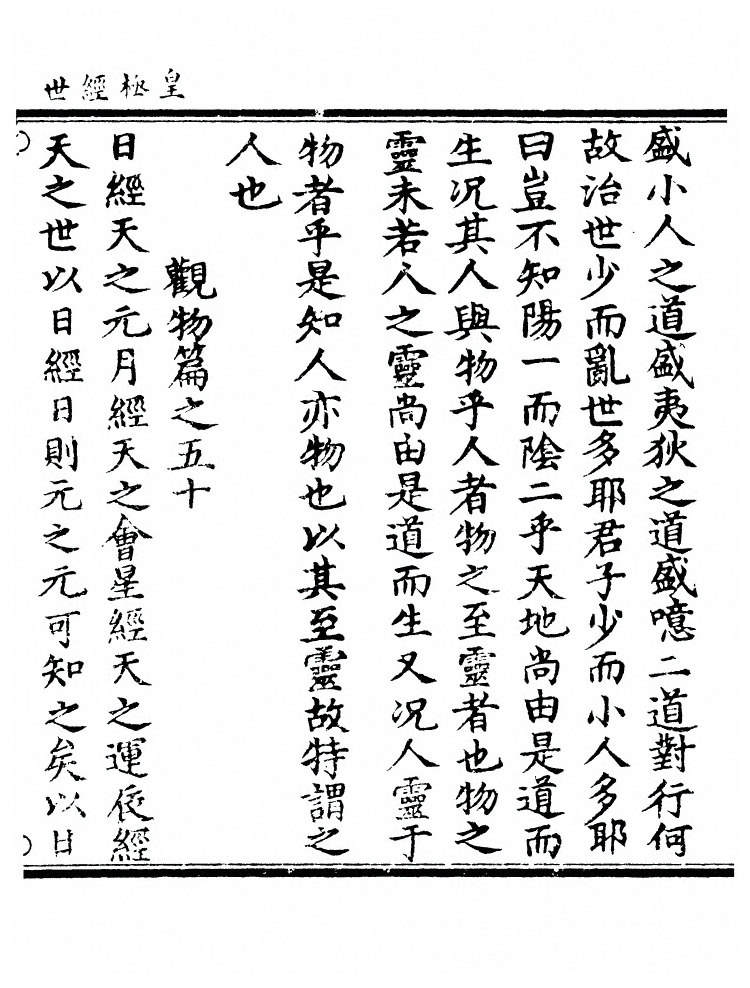 皇極經世
盛小人之道盛夷狄之道盛噫二道對行何
故治世少而亂世多耶君子少而小人多耶
曰豈不知陽一而陰二乎天地尚由是道而
生况其人與物乎人者物之至靈者也物之
靈未若人之靈尚由是道而生又况人靈于
物者乎是知人亦物也以其至靈故特謂之
人也
觀物篇之五十
日經天之元月經天之會星經天之運辰經
天之世以日經日則元之元可知之矣以日